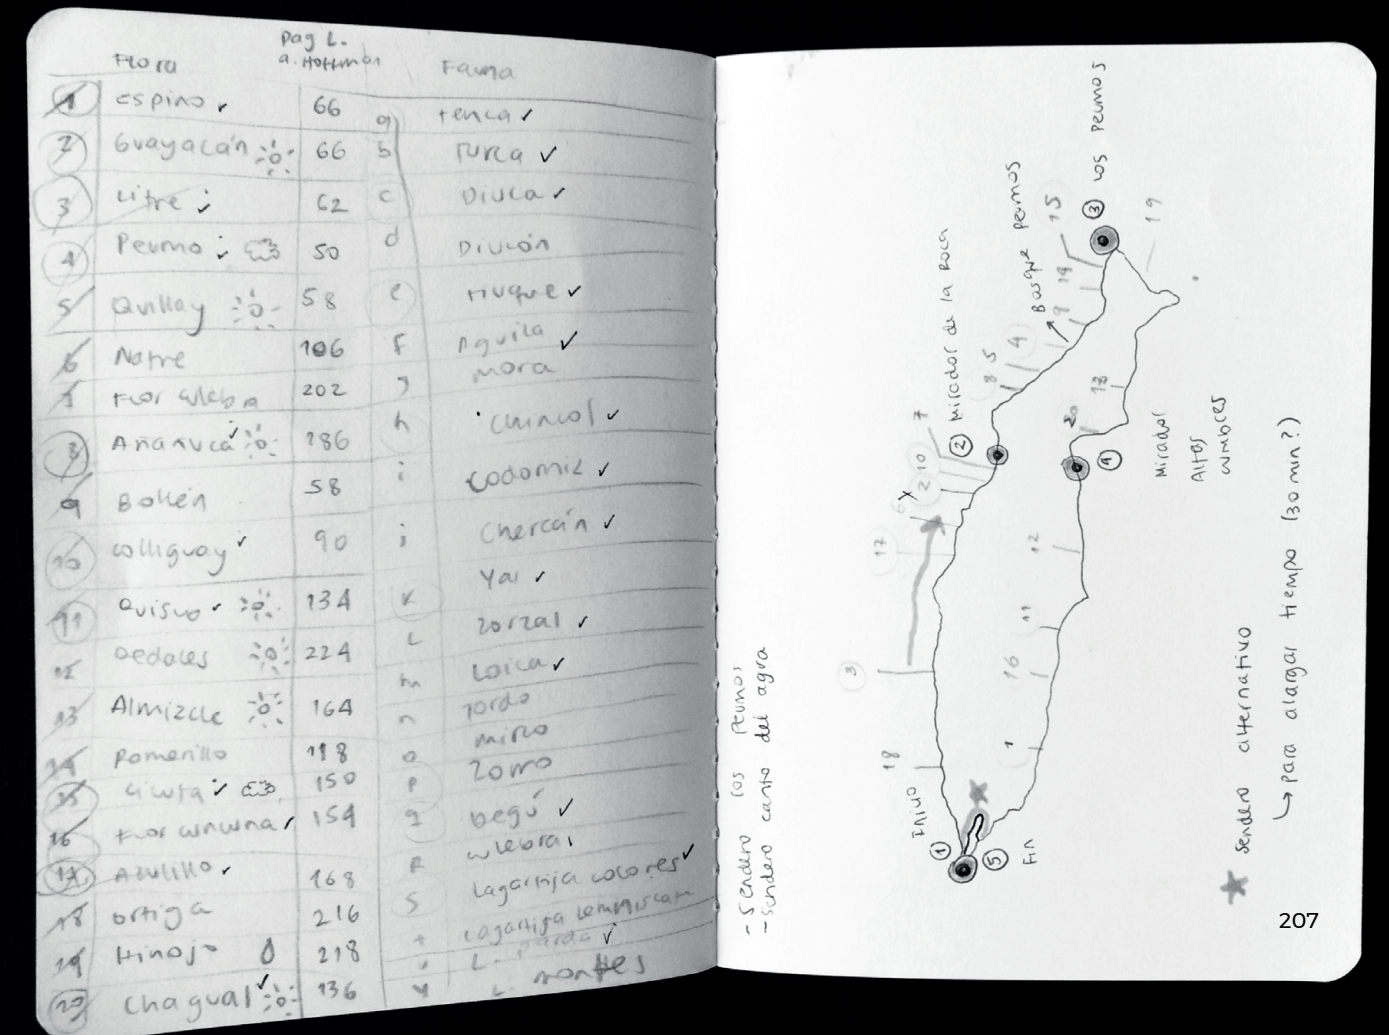 Flora Pag L. Fauna
a. Hoffman
1 Espino 66 a Tenca
2 Guayacán 66 b Turca
3 Litre 62 c Diuca
4 Peumo 50 d Diucón
5 Quillay 58 e Tiuque
6 Natre 106 f Aguila
7 Flor culebra 202 g Mora
8 Añañuca 186 h Chincol
9 Bollén 58 i Codorniz
10 Colliguay 90 j Chercán
11 Quisco 134 k Yal
12 Dedales 224 L Zorzal
13 Almizcle 164 m Loica
14 Romerillo 118 n Tordo
15 150 o Mirlo
16 Flor 154 p Zorro
17 Azulillo 168 q Degú
18 Ortiga 216 R Culebra
19 Hinojo 218 S Lagartija colores
20 Chagual 136 t Lagartija
L. parda
L.
- Sendero Los Peumos
- Sendero canto del agua
1 Inicio
18
3
17
6 x
2
10
7
2 Mirador de la Roca
8 5
4
9
Bosque Peumos
14
15
3 Los Peumos
19
13
20
4
Mirador
Altas
cumbres
12
11
16
1
5 Fin
Sendero alternativo
↳ para alargar tiempo (30 min?)
207